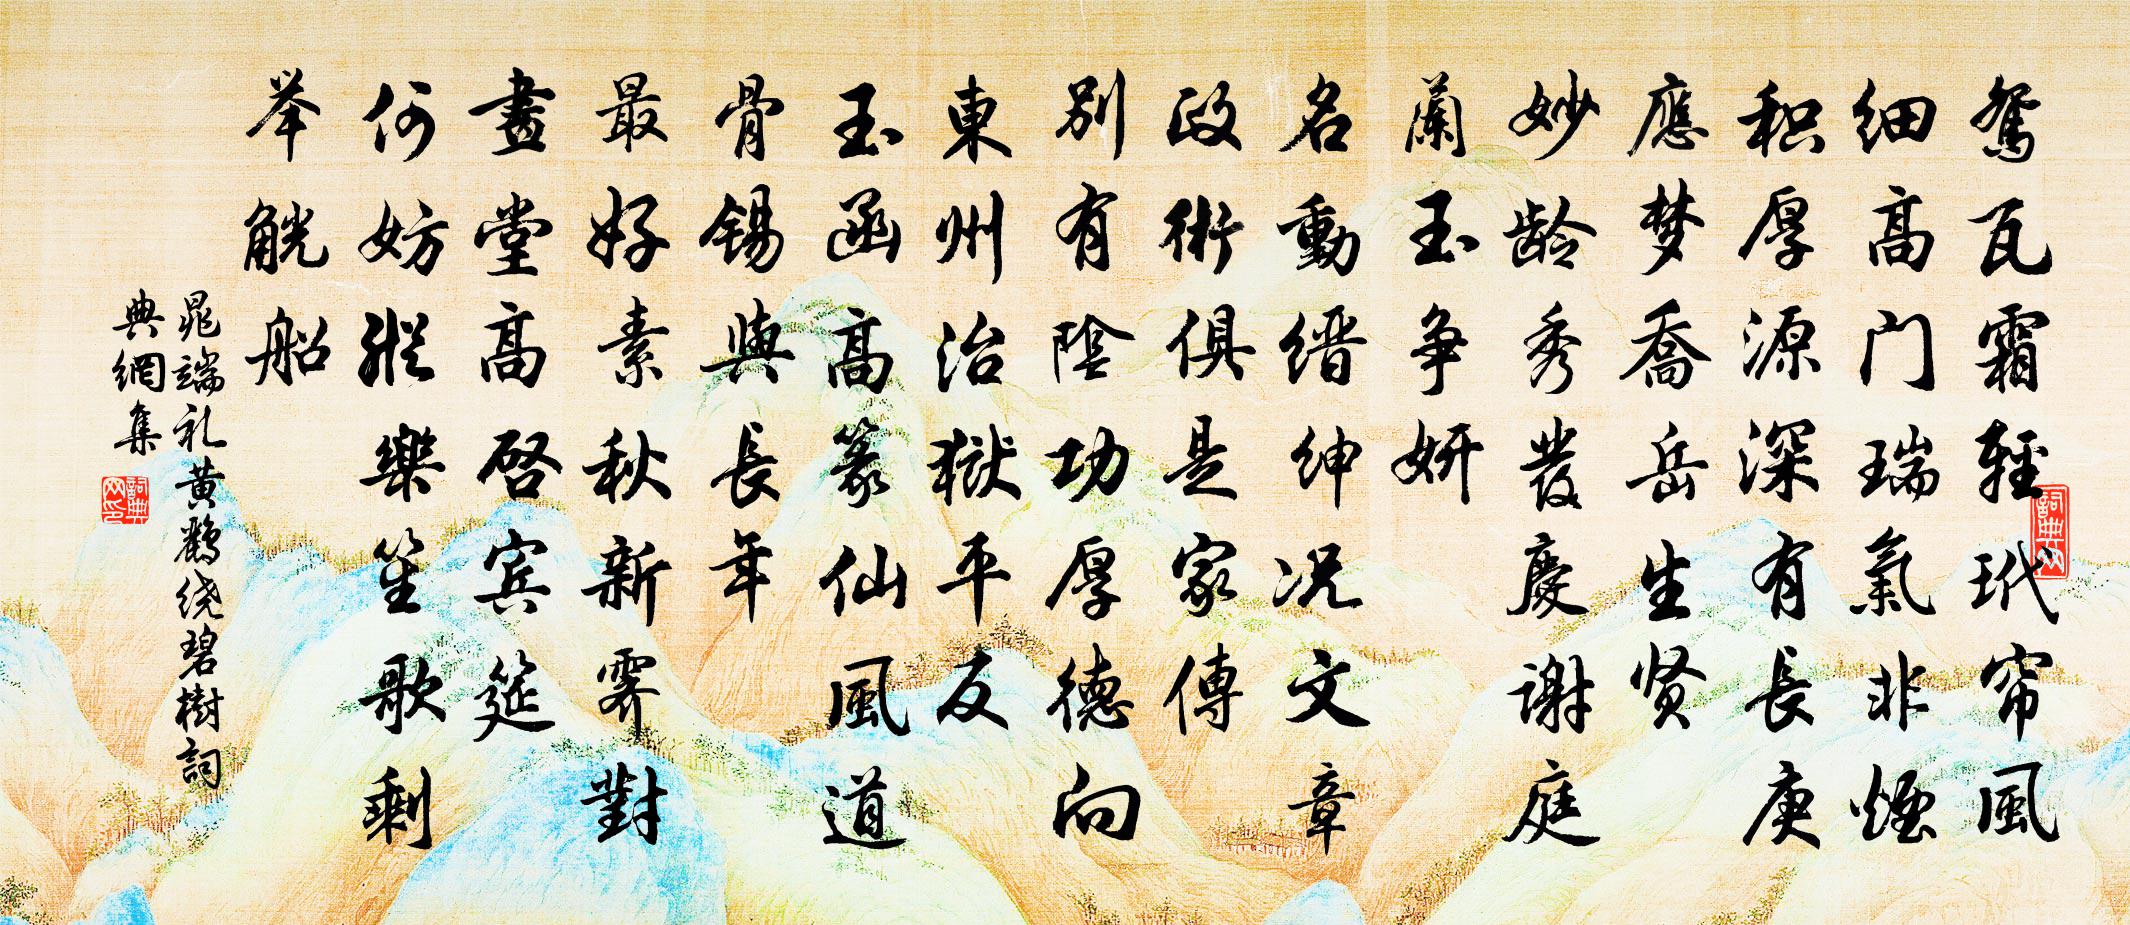 鸳瓦霜轻玳帘風
细高门瑞氣非煙
积厚源深有長庚
應梦喬岳生贤
妙龄秀發慶谢庭
蘭玉争妍
名動缙绅况文章
政術俱是家傳
别有陰功厚德向
東州治獄平反
玉函高篆仙風道
骨锡與長年
最好素秋新霁對
畫堂高啓宾筵
何妨縱樂笙歌剩
举觥船
晁端礼黄鹤绕碧樹詞
典網集
詞典网
詞典网印